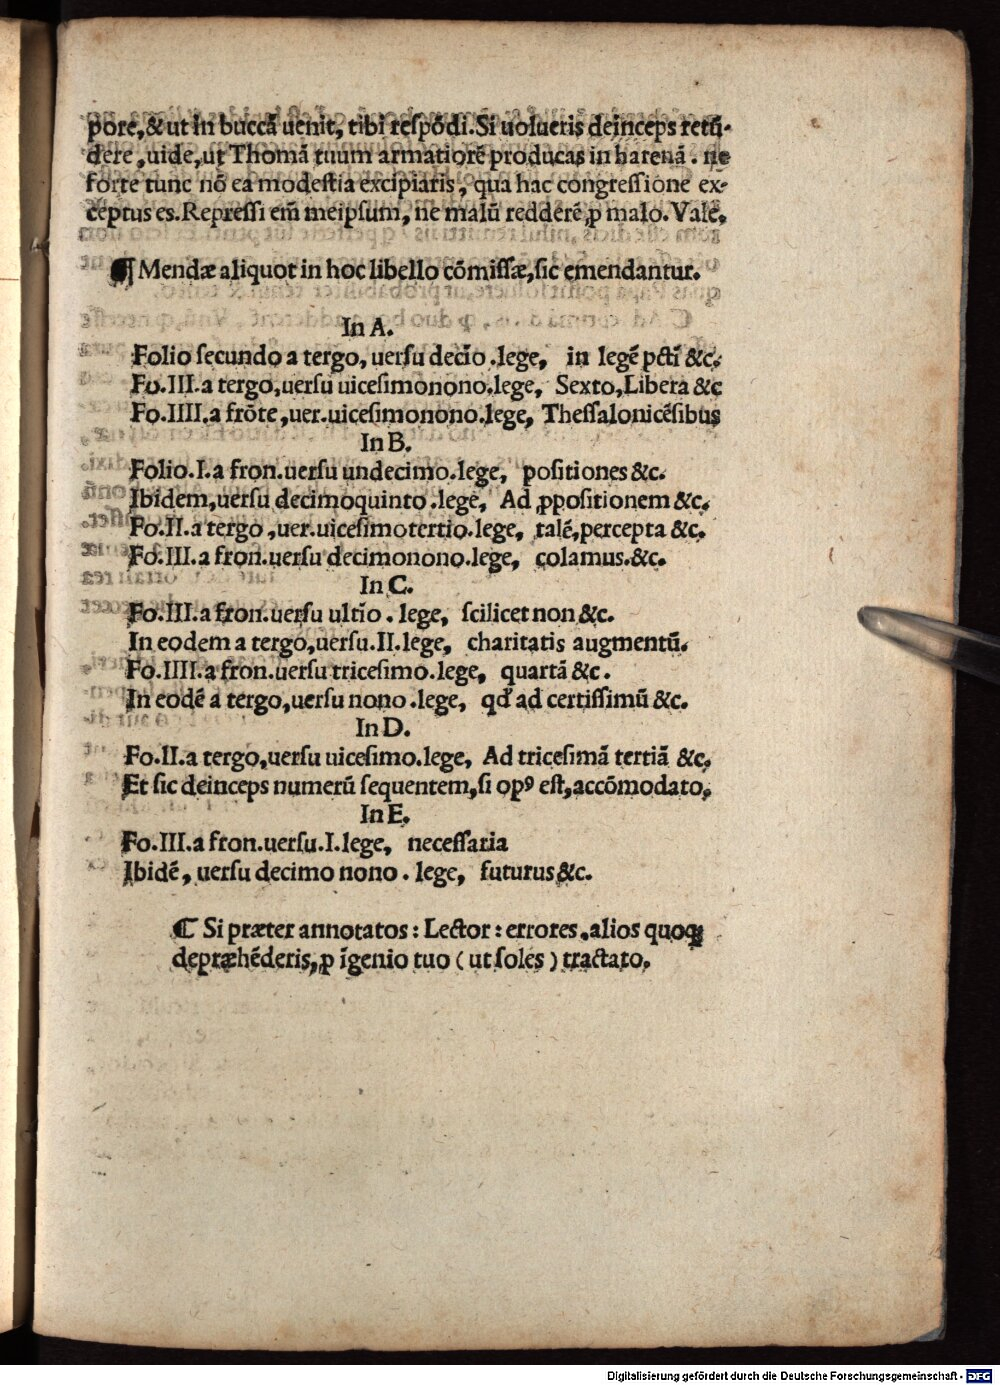 pore, & ut in buccā uenit, tibi respōdi. Si uolueris deinceps retū-
dere, uide, ut Thomā tuum armatiorē producas in harenā. ne
forte tunc nō ea modestia excipiaris, qua hac congressione ex-
ceptus es. Repressi em̄ meipsum, ne malū redderē ꝓ malo. Vale.
¶ Mendæ aliquot in hoc libello cōmissæ, sic emendantur.
In A.
Folio secundo a tergo, uersu decīo. lege, in legē pctī &c.
Fo. III. a tergo, uersu uicesimonono. lege, Sexto, Libera &c
Fo. IIII. a frōte, uer. uicesimonono. lege, Thessalonicēsibus
In B.
Folio. I. a fron. uersu undecimo. lege, positiones &c.
Ibidem, uersu decimoquinto. lege, Ad ꝓpositionem &c.
Fo. II. a tergo, uer. uicesimotertio. lege, talē, percepta &c.
Fo. III. a fron. uersu decimonono. lege, colamus. &c.
In C.
Fo. III. a fron. uersu ultīo. lege, scilicet non &c.
In eodem a tergo, uersu. II. lege, charitatis augmentū.
Fo. IIII. a fron. uersu tricesimo. lege, quartā &c.
In eodē a tergo, uersu nono. lege, qd' ad certissimū &c.
In D.
Fo. II. a tergo, uersu uicesimo. lege, Ad tricesimā tertiā &c.
Et sic deinceps numerū sequentem, si opꝰ est, accōmodato.
In E.
Fo. III. a fron. uersu. I. lege, necessaria
Ibidē, uersu decimo nono. lege, futurus &c.
¶ Si præter annotatos: Lector: errores, alios quoqꝫ
depræhēderis, ꝓ īgenio tuo (ut soles) tractato.
Digitalisierung gefördert durch die Deutsche Forschungsgemeinschaft - DFG